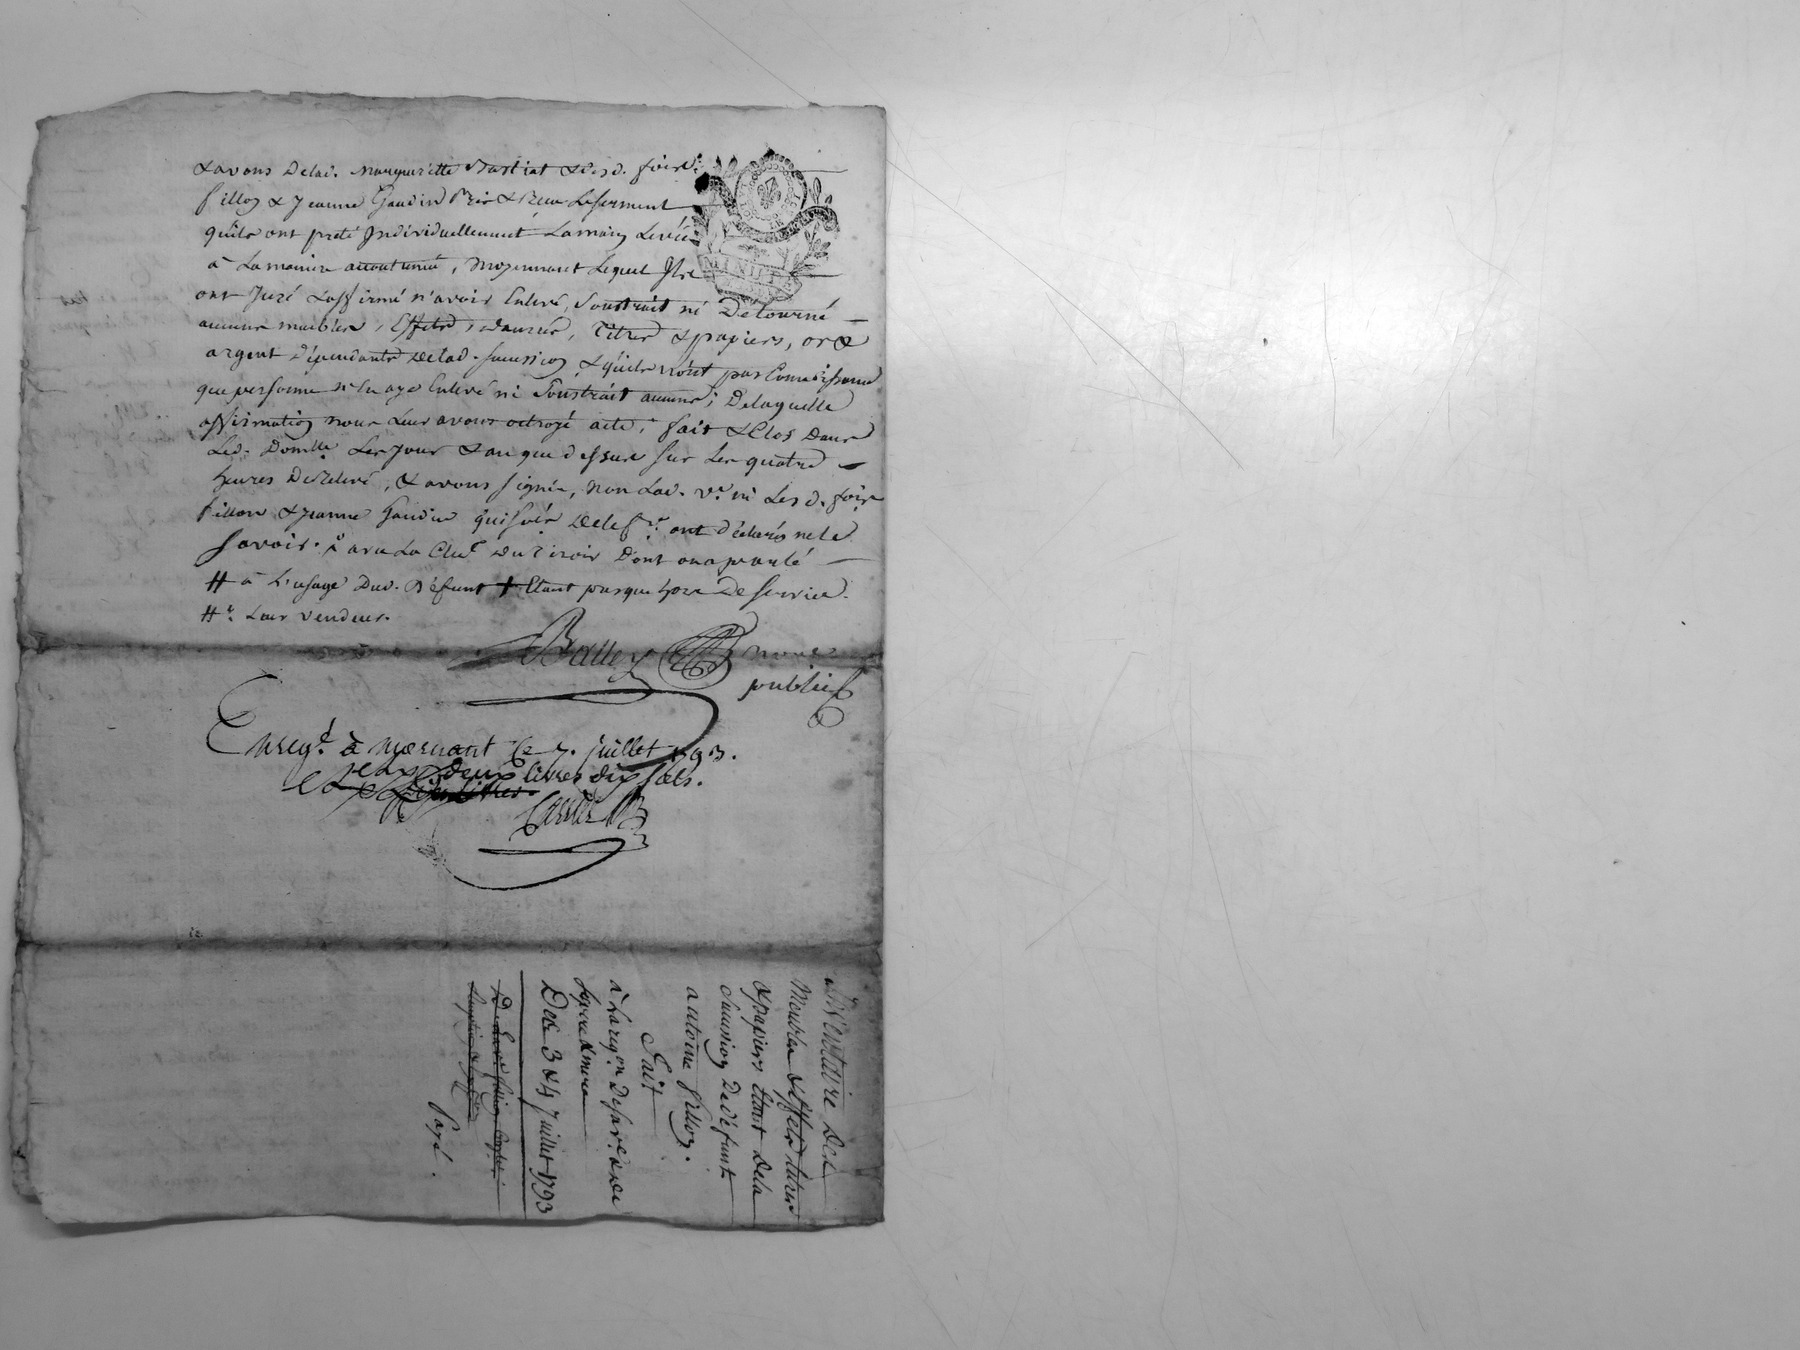 & avons de lad. Margueritte Bastiat & des d.
fillon & Jeanne Gaudin Pris & Reçu Le serment
qu'ils ont preté Individuellement La main Levée
à La maniere accoutumé, moyennant Lequel Ils
ont Juré & affirmé n'avoir Enlevé, Soustrait ni Détourné
aucuns meubles, Effets, danrées, Titres & papiers, or &
argent dépendants de lad. succession, & qu'ils n'ont pas Connoissance
que personne n'en aye Enlevé ni Soustrait aucuns; De laquelle
affirmation nous Leur avons octroyé acte; fait & Clos Dans
Led. Domlle Les Jour & an que dessus sur Les quatre
heures De Relevé, & avons signé, non Lad. ve ni Les d.
fillon & Jeanne Gaudin qui ont déclarés ne le
Savoir. la Clef du tiroir Dont on a parlé
# à L'usage Dud. Défunt + Etant presque hors De service.
Leur vendeur.
Balley
public
Enregt. à mornant Le 7. juillet 1793.
Reçu deux livres dix sols.
MINUTE
Inventaire Des
Meubles & Effets titres
& papiers Etant dela
succession de défunt
antoine fillon.
Fait
à La reqon. de
Des 3 & 4 Juillet 1793
Payé.